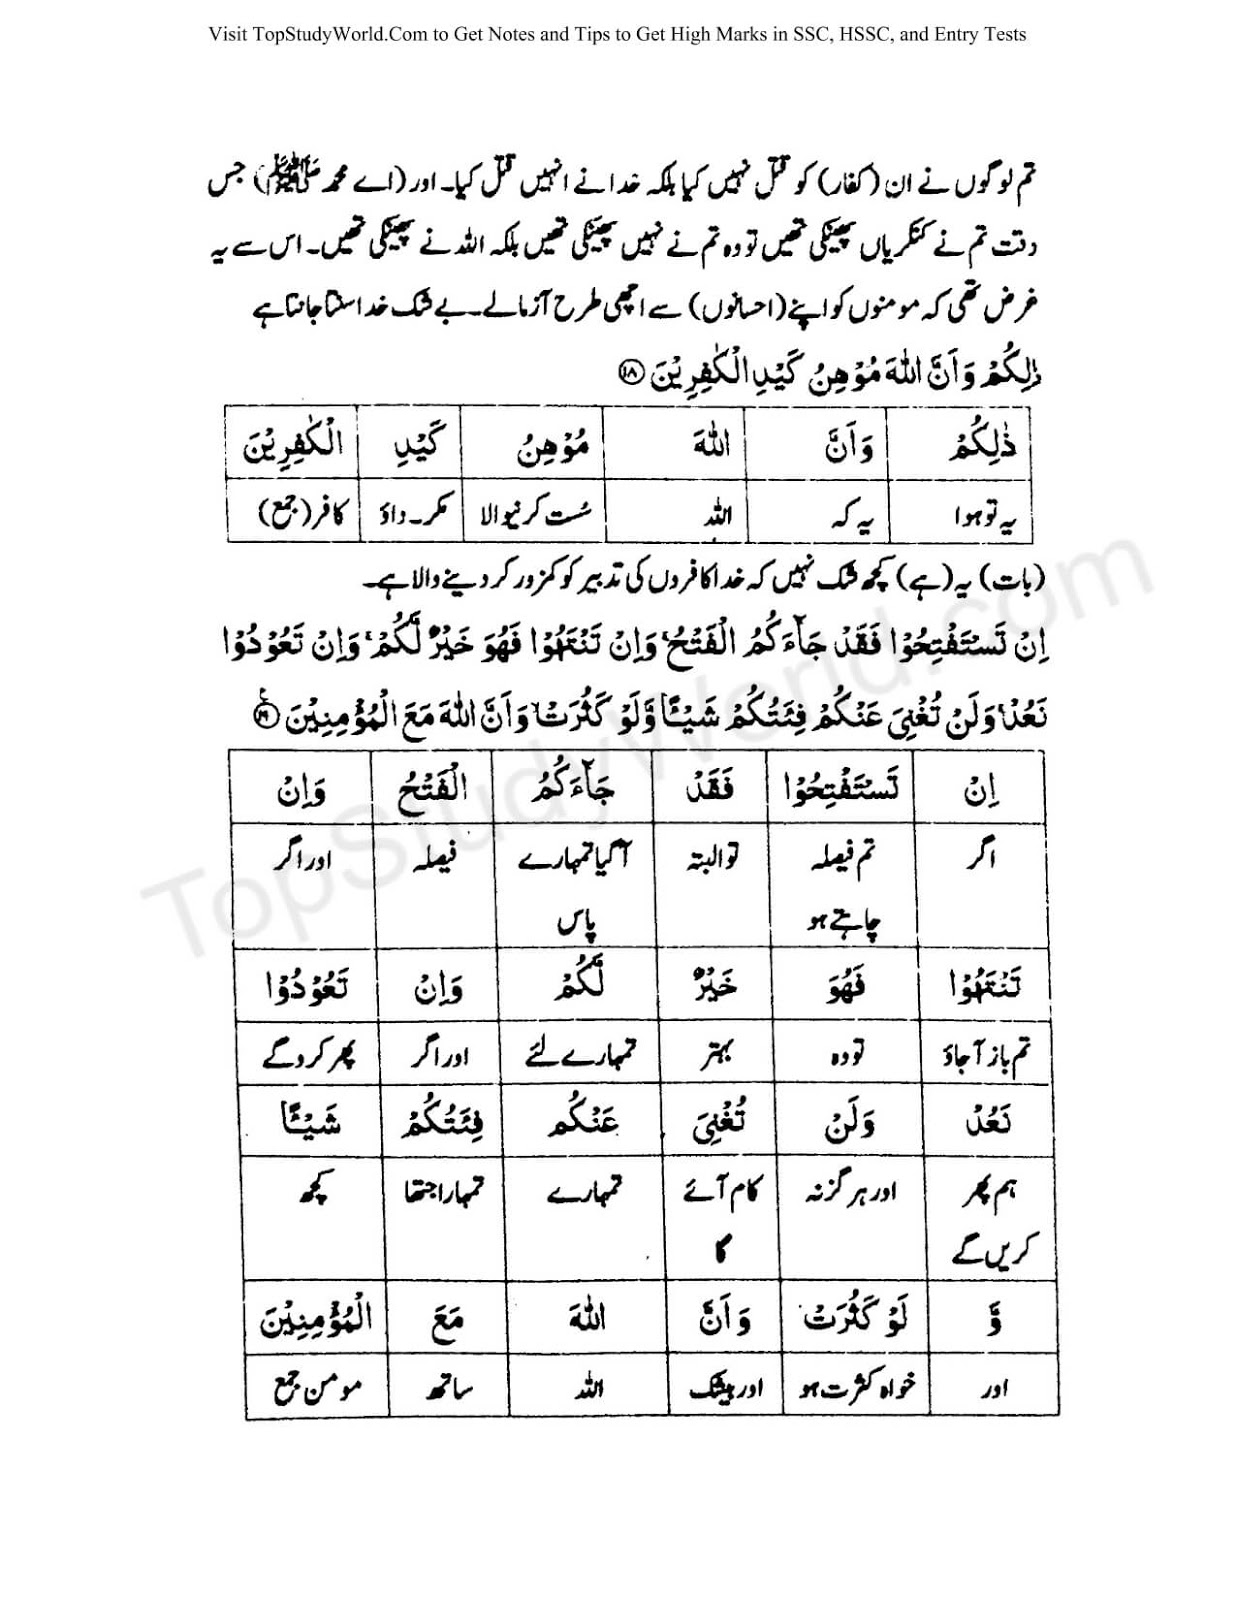 Visit TopStudyWorld.Com to Get Notes and Tips to Get High Marks in SSC, HSSC, and Entry Tests
تم لوگوں نے ان (کفار) کو قتل نہیں کیا بلکہ خدا نے انہیں قتل کیا۔ اور (اے محمد ﷺ) جس
وقت تم نے کنکریاں پھینکی تھیں تو وہ تم نے نہیں پھینکی تھیں بلکہ اللہ نے پھینکی تھیں۔ اس سے یہ
غرض تھی کہ مومنوں کو اپنے (احسانوں) سے اچھی طرح آزمالے۔ بے شک خدا سنتا جانتا ہے
ذٰلِكُمْ وَاَنَّ اللّٰهَ مُوْهِنُ كَيْدِ الْكٰفِرِيْنَ ۝۱۸
ذٰلِكُمْ وَاَنَّ اللّٰهَ مُوْهِنُ كَيْدِ الْكٰفِرِيْنَ
یہ تو ہوا یہ کہ اللہ سُست کرنیوالا مکر۔ داؤ کافر (جمع)
(بات) یہ (ہے) کچھ شک نہیں کہ خدا کافروں کی تدبیر کو کمزور کر دینے والا ہے۔
اِنْ تَسْتَفْتِحُوْا فَقَدْ جَآءَكُمُ الْفَتْحُ ۚ وَاِنْ تَنْتَهُوْا فَهُوَ خَيْرٌ لَّكُمْ ۚ وَاِنْ تَعُوْدُوْا
نَعُدْ ۚ وَلَنْ تُغْنِىَ عَنْكُمْ فِئَتُكُمْ شَيْـًٔا وَّلَوْ كَثُرَتْ ۙ وَاَنَّ اللّٰهَ مَعَ الْمُؤْمِنِيْنَ ۝۱۹
اِنْ تَسْتَفْتِحُوْا فَقَدْ جَآءَكُمُ الْفَتْحُ وَاِنْ
اگر تم فیصلہ تو البتہ آگیا تمہارے فیصلہ اور اگر
چاہتے ہو پاس
تَنْتَهُوْا فَهُوَ خَيْرٌ لَّكُمْ وَاِنْ تَعُوْدُوْا
تم باز آجاؤ تو وہ بہتر تمہارے لئے اور اگر پھر کروگے
نَعُدْ وَلَنْ تُغْنِىَ عَنْكُمْ فِئَتُكُمْ شَيْـًٔا
ہم پھر اور ہرگز نہ کام آئے تمہارے تمہارا جتھا کچھ
کریں گے گا
وَّ لَوْ كَثُرَتْ وَاَنَّ اللّٰهَ مَعَ الْمُؤْمِنِيْنَ
اور خواہ کثرت ہو اور بیشک اللہ ساتھ مومن جمع
TopStudyWorld.com